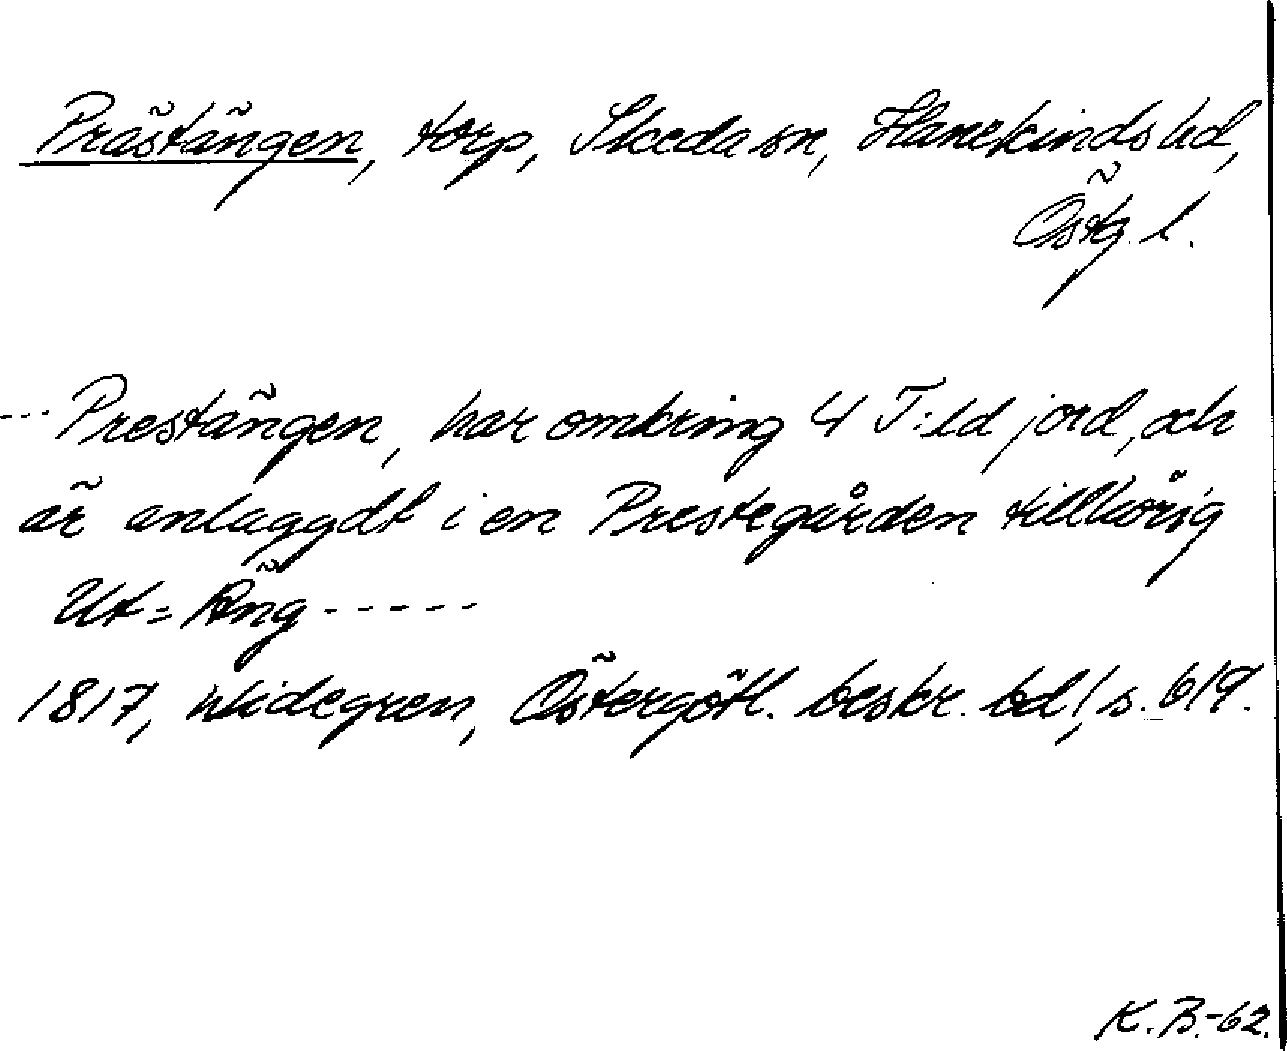 Prästängen, torp, Skeda sn, Hanekinds hd,
Östg. l.
--- Prestängen, har omkring 4 T:ld jord, och
är anlaggdt i en Prestegården tillhörig
Ut= Äng -----
1817, Widegren, Östergötl. beskr. bd 1, s. 619.
K.B.-62.